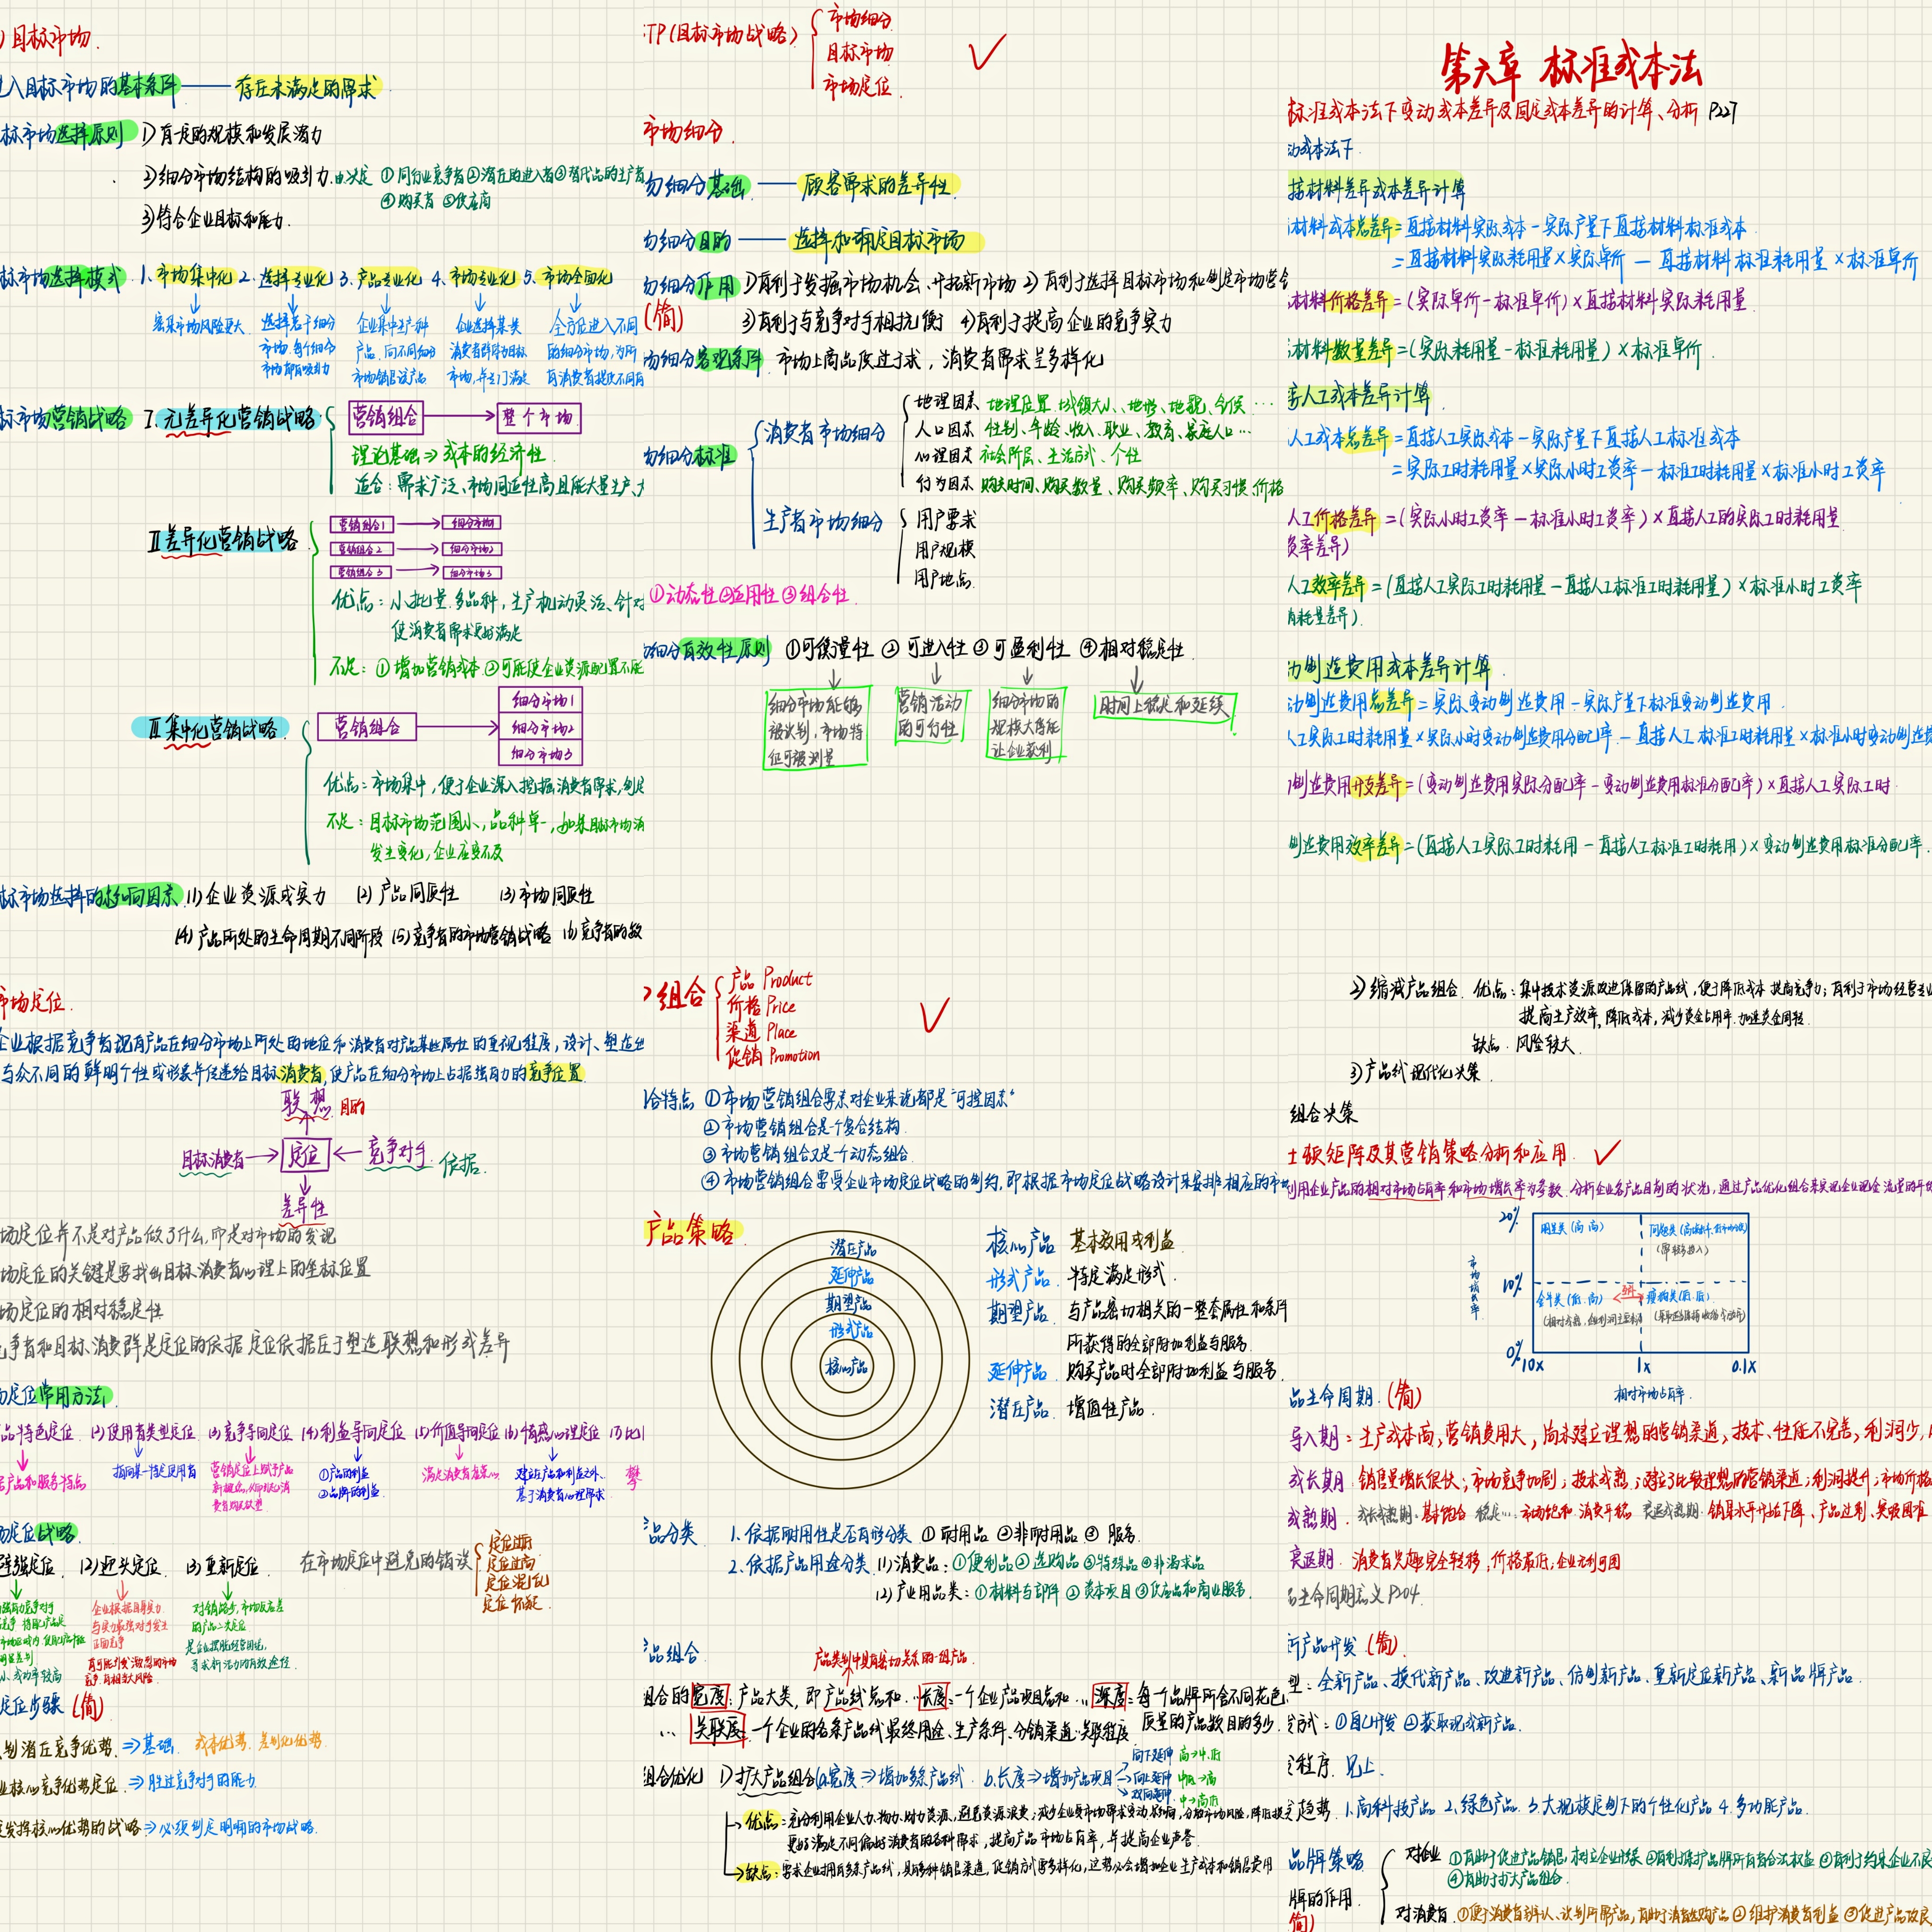 )目标市场.
进入目标市场的基本条件——存在未满足的需求
标市场选择原则 1)有一定的规模和发展潜力
2)细分市场结构的吸引力.由决定 ①同行业竞争者②潜在的进入者③替代品的生产者
④购买者 ⑤供应商
3)符合企业目标和能力.
标市场选择模式 1.市场集中化 2.选择专业化 3.产品专业化 4.市场专业化 5.市场全面化
密集市场风险更大
选择若干细分市场.每个细分市场都有吸引力
企业集中生产一种产品.向不同细分市场销售该产品
企业选择某类消费者群体为目标市场,并专门满足
全方位进入不同的细分市场,为所有消费者提供不同
标市场营销战略 I.无差异化营销战略
营销组合 → 整个市场
理论基础⇒成本的经济性
适合:需求广泛、市场同近性高且能大量生产、
II差异化营销战略
营销组合1 → 细分市场1
营销组合2 → 细分市场2
营销组合3 → 细分市场3
优点:小批量.多品种,生产机动灵活、针对
使消费者需求更好满足
不足:①增加营销成本②可能使企业资源配置不能
III集中化营销战略
营销组合 → 细分市场1
细分市场2
细分市场3
优点:市场集中,便于企业深入挖掘消费者需求,
不足:目标市场范围小,品种单一,如果目标市场消
发生变化,企业应变不及
标市场选择的影响因素 (1)企业资源或实力 (2)产品同质性 (3)市场同质性
(4)产品所处的生命周期不同阶段 (5)竞争者的市场营销战略 (6)竞争者的数
STP(目标市场战略)
市场细分
目标市场
市场定位
市场细分.
场细分基础——顾客需求的差异性
场细分目的——选择和确定目标市场
场细分作用 1)有利于发掘市场机会、开拓新市场 2)有利于选择目标市场和制定市场营
(简) 3)有利于与竞争对手相抗衡 4)有利于提高企业的竞争实力
场细分客观条件 市场上商品供过于求,消费者需求呈多样化
场细分标准
消费者市场细分
地理因素 地理位置.城镇大小、地形、地貌、气候…
人口因素 性别、年龄、收入、职业、教育、家庭人口…
心理因素 社会阶层、生活方式、个性
行为因素 购买时间、购买数量、购买频率、购买习惯.价格
生产者市场细分
用户要求
用户规模
用户地点.
①动态性②适用性③组合性
场细分有效性原则 ①可衡量性 ②可进入性 ③可盈利性 ④相对稳定性
细分市场能够被识别,市场特征可被测量
营销活动的可行性
细分市场的规模大得能让企业获利
时间上稳定和延续
第六章 标准成本法
标准成本法下变动成本差异及固定成本差异的计算、分析 P227
动成本法下.
接材料差异成本差异计算
材料成本总差异=直接材料实际成本-实际产量下直接材料标准成本
=直接材料实际耗用量×实际单价-直接材料标准耗用量×标准单价
材料价格差异=(实际单价-标准单价)×直接材料实际耗用量
材料数量差异=(实际耗用量-标准耗用量)×标准单价.
接人工成本差异计算
人工成本总差异=直接人工实际成本-实际产量下直接人工标准成本
=实际工时耗用量×实际小时工资率-标准工时耗用量×标准小时工资率
人工价格差异=(实际小时工资率-标准小时工资率)×直接人工的实际工时耗用量
资率差异)
人工效率差异=(直接人工实际工时耗用量-直接人工标准工时耗用量)×标准小时工资率
耗量差异).
动制造费用成本差异计算.
动制造费用总差异=实际变动制造费用-实际产量下标准变动制造费用.
人工实际工时耗用量×实际小时变动制造费用分配率-直接人工标准工时耗用量×标准小时变动制造费
制造费用开支差异=(变动制造费用实际分配率-变动制造费用标准分配率)×直接人工实际工时
制造费用效率差异=(直接人工实际工时耗用-直接人工标准工时耗用)×变动制造费用标准分配率.
市场定位.
企业根据竞争者现有产品在细分市场上所处的地位和消费者对产品某些属性的重视程度,设计、塑造
与众不同的鲜明个性或形象并传递给目标消费者,使产品在细分市场上占据强有力的竞争位置
联想 目的
目标消费者→定位←竞争对手 依据.
差异性
场定位并不是对产品做了什么,而是对市场的发现
场定位的关键是要找出目标消费者心理上的坐标位置
场定位的相对稳定性
争者和目标消费群是定位的依据 定位依据在于塑造联想和形成差异
场定位常用方法
品特色定位 (2)使用者类型定位 (3)竞争导向定位 (4)利益导向定位 (5)价值导向定位 (6)情感心理定位 (7)比
产品和服务特点
指向某一特定使用者
①产品的利益
②品牌的利益
建立在产品和利益之外.
基于消费者心理需求
攀
场定位战略
避强定位. (2)迎头定位. (3)重新定位.
在市场定位中避免的错误
定位过高
定位混乱
定位怀疑.
企业根据自身实力
与实力最强对手发生
正面竞争
有可能引发激烈的市场
竞争.有相当大风险
对销路少,市场反应差
的产品二次定位
是企业摆脱经营困境,
寻求新活力的有效途径
定位步骤 (简)
别潜在竞争优势.⇒基础. 成本优势.差别化优势.
业核心竞争优势定位.⇒胜过竞争对手的能力
发挥核心优势的战略⇒必须制定明晰的市场战略.
组合
产品 Product
价格 Price
渠道 Place
促销 Promotion
合特点 ①市场营销组合要素对企业来说都是“可控因素”
②市场营销组合是一个复合结构.
③市场营销组合又是一个动态组合.
④市场营销组合要受企业市场定位战略的制约,即根据市场定位战略设计来安排相应的市
产品策略
潜在产品
延伸产品
期望产品
形式产品
核心产品
核心产品 基本效用或利益
形式产品 特定满足形式.
期望产品 与产品密切相关的一整套属性和条件
所获得的全部附加利益与服务.
延伸产品 购买产品时全部附加利益与服务.
潜在产品 增值性产品.
品分类 1.依据耐用性是否有形分类 ①耐用品 ②非耐用品 ③服务.
2.依据产品用途分类 (1)消费品:①便利品②选购品③特殊品④非渴求品
(2)产业用品类:①材料与部件②资本项目③供应品和商业服务.
品组合 产品类别中具有密切关系的一组产品
组合的宽度:产品大类,即产品线总和.··长度:一个企业产品项目总和..深度:每一个品牌所含不同花色.
质量的产品数目的多少.
... 关联度.一个企业的各条产品线最终用途、生产条件、分销渠道··关联程度
组合优化 1)扩大产品组合(a.宽度⇒增加多条产品线. b.长度⇒增加产品项目
向下延伸 高→中.低
向上延伸 中低→高
双向延伸 中→高低
优点:充分利用企业人力.物力.财力资源,避免资源浪费;减少企业受市场需求变动影响,分散市场风险,降低损
更好满足不同偏好消费者的各种需求,提高产品市场占有率,并提高企业声誉.
缺点:要求企业拥有多条产品线,具有多种销售渠道,促销方式要多样化,这势必会增加企业生产成本和销售费用
2)缩减产品组合. 优点:集中技术资源改进保留的产品线,便于降低成本 提高竞争力;有利于市场经营专业
提高生产效率,降低成本,减少资金占用率.加速资金周转
缺点.风险较大.
3)产品线现代化决策.
组合决策
士顿矩阵及其营销策略分析和应用.
利用企业产品的相对市场占有率和市场增长率为参数.分析企业各产品目前的状况,通过产品优化组合来实现企业现金流量的平
20%
10%
0%
市场增长率
明星类(高 高)
金牛类(低.高)
瘦狗类(低.低)
10x 1x 0.1x
相对市场占有率.
品生命周期.(简)
导入期:生产成本高,营销费用大,尚未建立理想的营销渠道,技术、性能不完善,利润少,
成长期.销售量增长很快;市场竞争加剧;技术成熟;建立了比较理想的营销渠道;利润提升;市场价格
衰退期.消费者兴趣完全转移,价格最低,企业无利可图
生命周期意义 P204.
新产品开发.(简)
型:全新产品、换代新产品、改进新产品、仿制新产品、重新定位新产品、新品牌产品.
方式:①自己开发 ②获取现成新产品.
程序.见上.
趋势.1.高科技产品 2.绿色产品.3.大规模定制下的个性化产品 4.多功能产品.
品牌策略
牌的作用.
简)
对企业 ①有助于促进产品销售,树立企业形象②有利于保护品牌所有者合法权益③有利于约束企业不良
④有助于扩大产品组合.
对消费者.①便于消费者辨认、识别所需产品,有助于消费者选购产品②维护消费者利益③促进产品改良